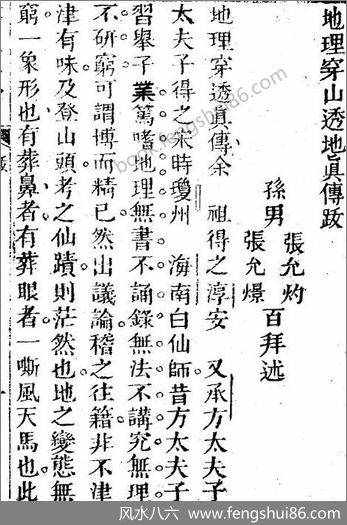 地理穿山透地眞傳跋
孫男
張允灼
張允燝
百拜述
地理穿透眞傳余 祖得之淳安 又承方太夫子
太夫子得之宋時瓊州 海南白仙師昔方太夫子
習舉子業篤嗜地理無書不誦錄無法不講究無理
不研窮可謂博而精已然出議論稽之往籍非不津
津有味及登山頭考之仙蹟則茫然也地之變態無
窮一象形也有葬鼻者有葬眼者一嘶風天馬也此
book.fengshui86.com
风水八六 www.fengshui86.com